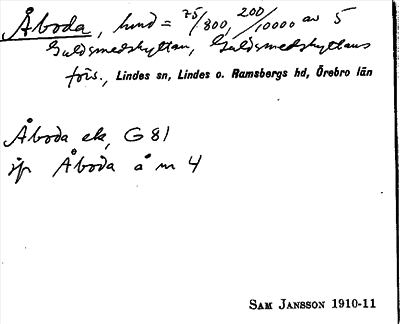 Åboda, hmd = 75/800, 200/10000 av 5
Guldsmedshyttan, Guldsmedshyttans
förs., Lindes sn, Lindes o. Ramsbergs hd, Örebro län
Åboda ek, G 81
jfr Åboda å nr 4
SAM JANSSON 1910-11